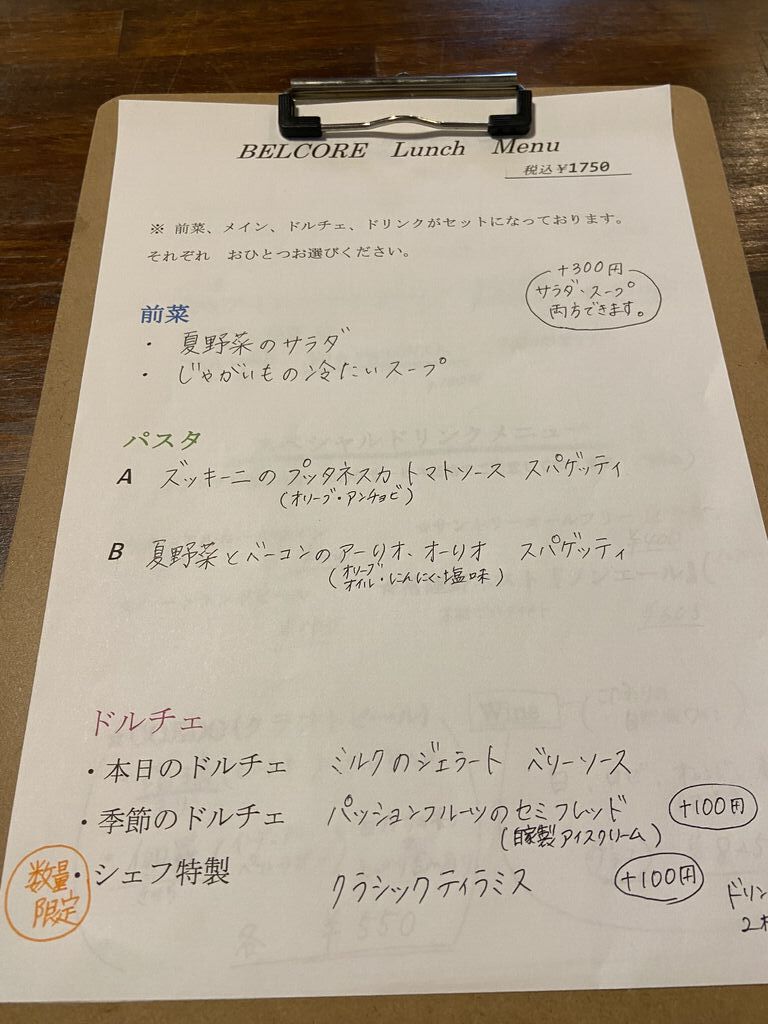 BELCORE Lunch Menu
税込￥1750
※ 前菜、メイン、ドルチェ、ドリンクがセットになっております。
それぞれ おひとつお選びください。
+300円
サラダ・スープ
両方できます。
前菜
・ 夏野菜のサラダ
・ じゃがいもの冷たいスープ
パスタ
A ズッキーニのプッタネスカ トマトソース スパゲッティ
(オリーブ・アンチョビ)
B 夏野菜とベーコンのアーリオ、オーリオ スパゲッティ
(オリーブオイル・にんにく・塩味)
ドルチェ
・本日のドルチェ ミルクのジェラート ベリーソース
・季節のドルチェ パッションフルーツのセミフレッド +100円
(自家製アイスクリーム)
数量限定
・シェフ特製 クラシックティラミス +100円
ドリン
2